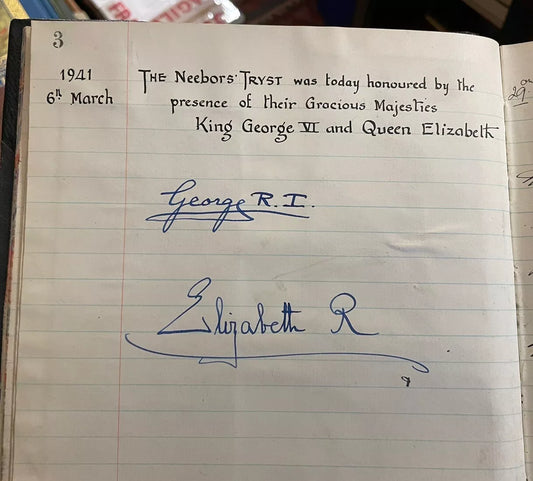 FRAGILE
3
1941
6th March
THE Neebors' TRYST was today honoured by the
presence of their Gracious Majesties
King George VI and Queen Elizabeth
George R.I.
Elizabeth R
29